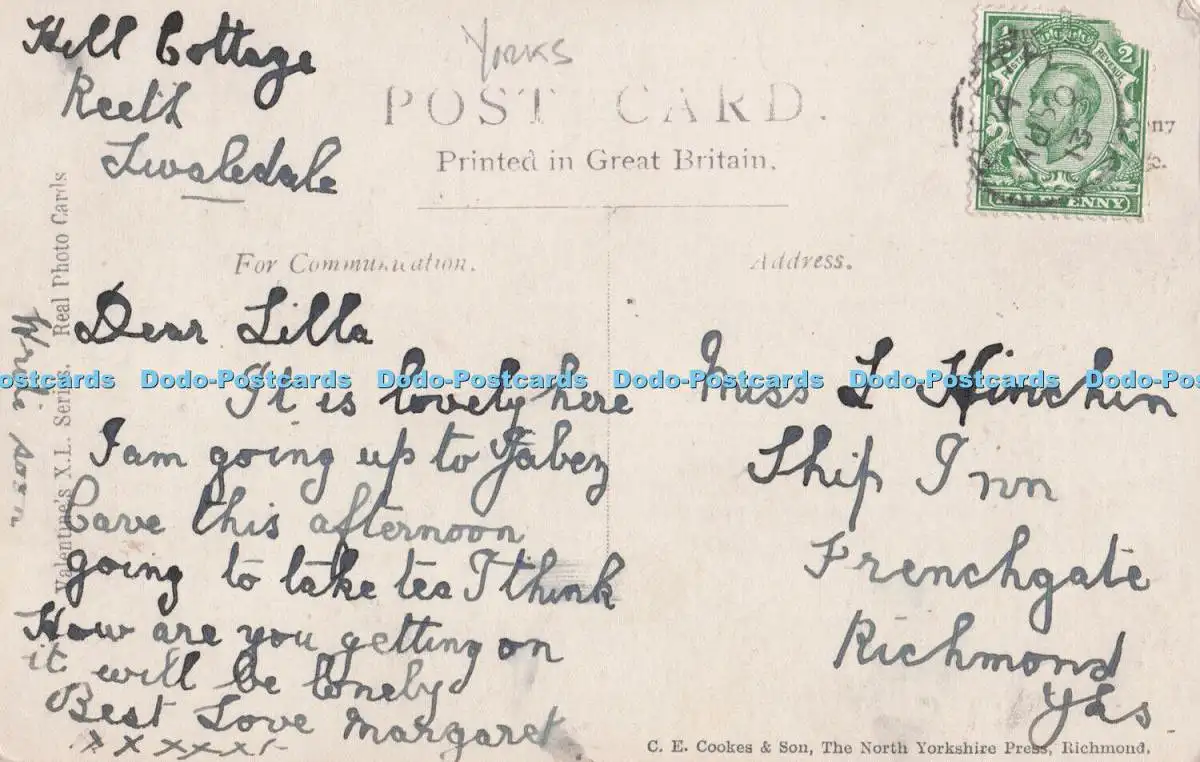 Hill Cottage
Reeth
Swaledale
Yorks
POST CARD.
Printed in Great Britain.
For Communication.
Address.
Dear Lilla
It is lovely here
I am going up to Jabez
Cave this afternoon
going to take tea I think
How are you getting on
it will be lonely
Best Love Margaret
x x x x x x
Write soon
Valentine's X.L. Series. Real Photo Cards
POSTAGE REVENUE
HALFPENNY
AU 30
13
Miss L Hinchin
Ship Inn
Frenchgate
Richmond
Yks.
C. E. Cookes & Son, The North Yorkshire Press, Richmond.
Dodo-Postcards Dodo-Postcards Dodo-Postcards Dodo-Postcards